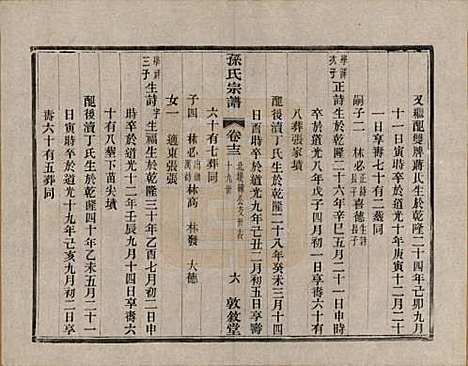 又繼配雙牌蔣氏生於乾隆二十四年己卯九月
十一日寅時卒於道光十年庚寅十二月二十
一日享壽七十有二葬同
嗣子二 林必 正詩長子 林 喜德生詩長子
學詳次子 正詩 生於乾隆三十六年辛巳五月二十四日
卒於道光八年戊子四月初四日享壽六十有
八葬張家墳
配後瀆丁氏生於乾隆二十八年癸未三月十四
日酉時卒於道光九年己丑二月初五日享壽
孫氏宗譜 卷十三 十九世 六 敦敘堂
六十有七葬同
子四 林必 出嗣漢詩 林高 林發 大德
女一 適東張張
學詳三子 生詩 字 生福生於乾隆三十年乙酉七月初二日申
時卒於道光十二年壬辰九月十四日享壽六
十有八葬下苗尖墳
配後瀆丁氏生於乾隆四十年乙未五月二十二
日寅時卒於道光十九年己亥九月初二日享
壽六十有五葬同